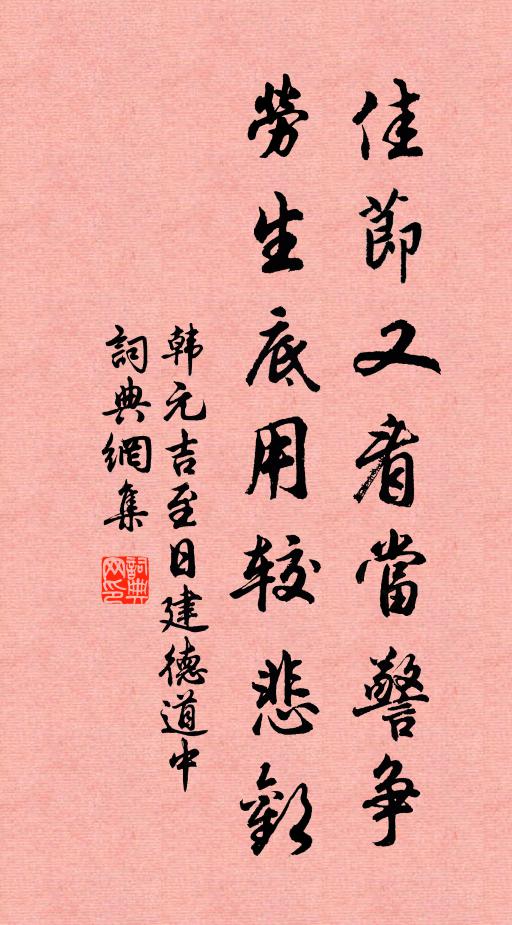 佳節又看當警争
勞生底用較悲歡
韩元吉至日建德道中
詞典網集
詞典网印